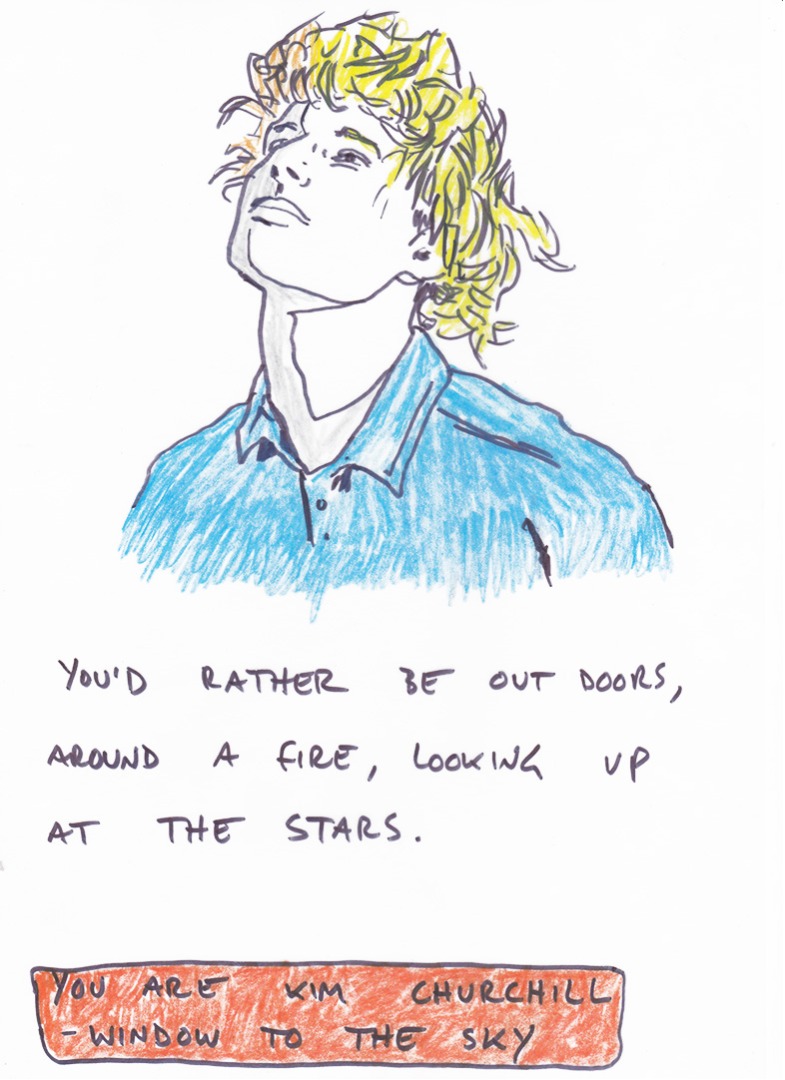 YOU'D RATHER BE OUT DOORS,
AROUND A FIRE, LOOKING UP
AT THE STARS.
YOU ARE KIM CHURCHILL
- WINDOW TO THE SKY